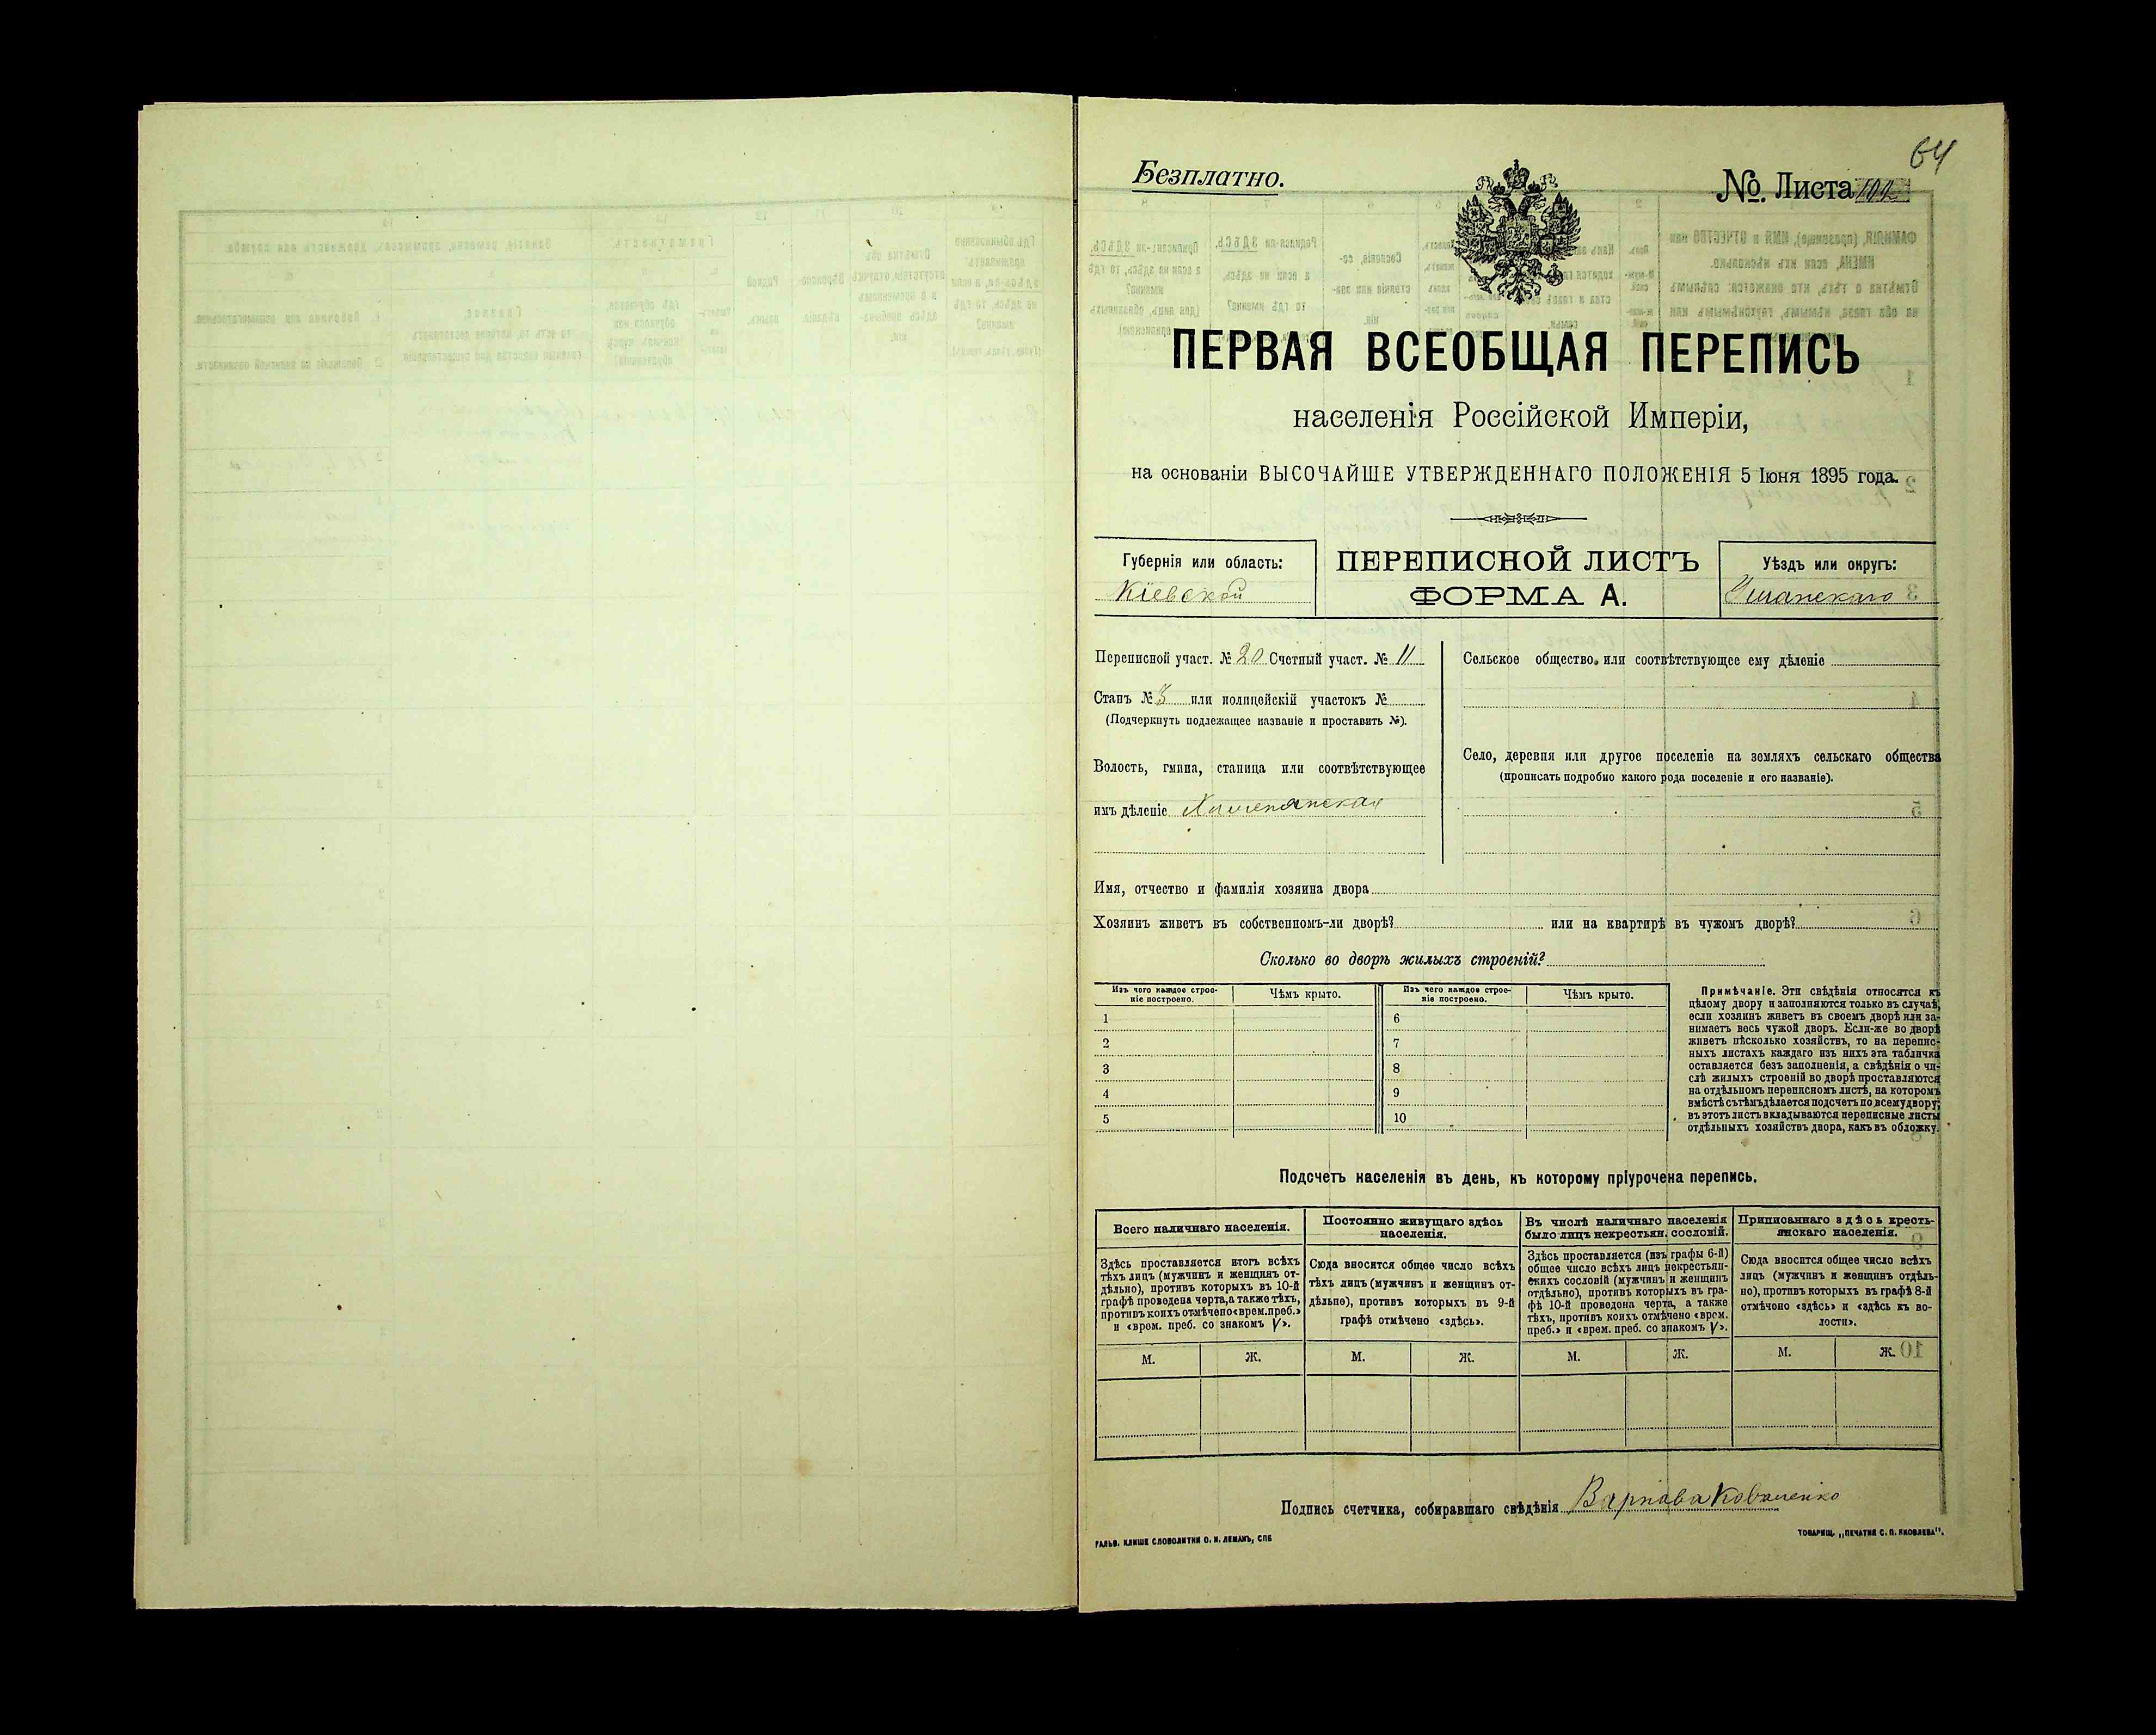 64
Безплатно.
№ Листа
ПЕРВАЯ ВСЕОБЩАЯ ПЕРЕПИСЬ
населенія Россійской Имперіи,
на основаніи ВЫСОЧАЙШЕ УТВЕРЖДЕННАГО ПОЛОЖЕНІЯ 5 Іюня 1895 года.
Губернія или область:
Кіевской
ПЕРЕПИСНОЙ ЛИСТЪ
ФОРМА А.
Уѣздъ или округъ:
Уманскаго
Переписной участ. № 20 Счетный участ. № 11
Станъ № 3 или полицейскій участокъ №
(Подчеркнуть подлежащее названіе и проставить №).
Волость, гмина, станица или соотвѣтствующее
имъ дѣленіе
Сельское общество или соотвѣтствующее ему дѣленіе
Село, деревня или другое поселеніе на земляхъ сельскаго общества
(прописать подробно какого рода поселеніе и его названіе).
Имя, отчество и фамилія хозяина двора
Хозяинъ живетъ въ собственномъ-ли дворѣ? или на квартирѣ въ чужомъ дворѣ?
Сколько во дворѣ жилыхъ строеній?
Изъ чего каждое строе-
ніе построено.
Чѣмъ крыто.
1
2
3
4
5
Изъ чего каждое строе-
ніе построено.
Чѣмъ крыто.
6
7
8
9
10
Примѣчаніе. Эти свѣдѣнія относятся къ
цѣлому двору и заполняются только въ случаѣ,
если хозяинъ живетъ въ своемъ дворѣ или за-
нимаетъ весь чужой дворъ. Если-же во дворѣ
живетъ нѣсколько хозяйствъ, то на перепис-
ныхъ листахъ каждаго изъ нихъ эта табличка
оставляется безъ заполненія, а свѣдѣнія о чи-
слѣ жилыхъ строеній во дворѣ проставляются
на отдѣльномъ переписномъ листѣ, на которомъ
вмѣстѣ съ тѣмъ дѣлается подсчетъ по всему двору;
въ этотъ листъ вкладываются переписные листы
отдѣльныхъ хозяйствъ двора, какъ въ обложку.
Подсчетъ населенія въ день, къ которому пріурочена перепись.
Всего наличнаго населенія.
Здѣсь проставляется итогъ всѣхъ
тѣхъ лицъ (мужчинъ и женщинъ от-
дѣльно), противъ которыхъ въ 10-й
графѣ проведена черта, а также тѣхъ,
противъ коихъ отмѣчено «врем. преб.»
и «врем. преб. со знакомъ V».
М. Ж.
Постоянно живущаго здѣсь
населенія.
Сюда вносится общее число всѣхъ
тѣхъ лицъ (мужчинъ и женщинъ от-
дѣльно), противъ которыхъ въ 9-й
графѣ отмѣчено «здѣсь».
М. Ж.
Въ числѣ наличнаго населенія
было лицъ некрестьян. сословій.
Здѣсь проставляется (изъ графы 6-й)
общее число всѣхъ лицъ некрестьян-
скихъ сословій (мужчинъ и женщинъ
отдѣльно), противъ которыхъ въ гра-
фѣ 10-й проведена черта, а также
тѣхъ, противъ коихъ отмѣчено «врем.
преб.» и «врем. преб. со знакомъ V».
М. Ж.
Приписаннаго здѣсь кресть-
янскаго населенія.
Сюда вносится общее число всѣхъ
лицъ (мужчинъ и женщинъ отдѣль-
но), противъ которыхъ въ графѣ 8-й
отмѣчено «здѣсь» и «здѣсь къ во-
лости».
М. Ж.
Подпись счетчика, собиравшаго свѣдѣнія Варнава Коваленко
ГАЛЬВ. КЛИШЕ СЛОВОЛИТНИ О. И. ЛЕМАНЪ, СПБ
ТОВАРИЩ. „ПЕЧАТНЯ С. П. ЯКОВЛЕВА".